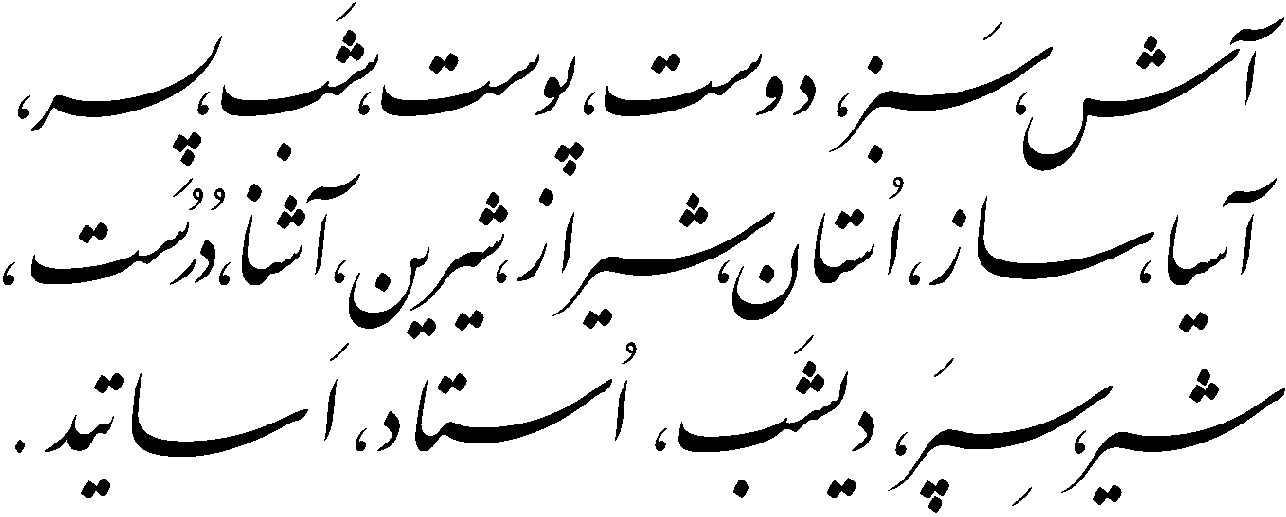 آش، سَبز، دوست، پوست، شَب، پسر،
آسیا، ساز، اُستان، شیراز، شیرین، آشنا، دُرُست،
شیر، سِپَر، دیشَب، اُستاد، اَساتید.